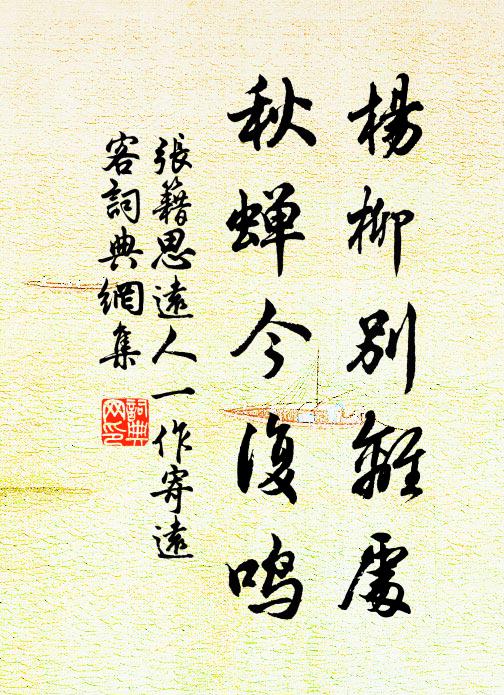 楊柳別離處
秋蝉今復鳴
張籍思遠人一作寄遠
客詞典網集
詞典
网印